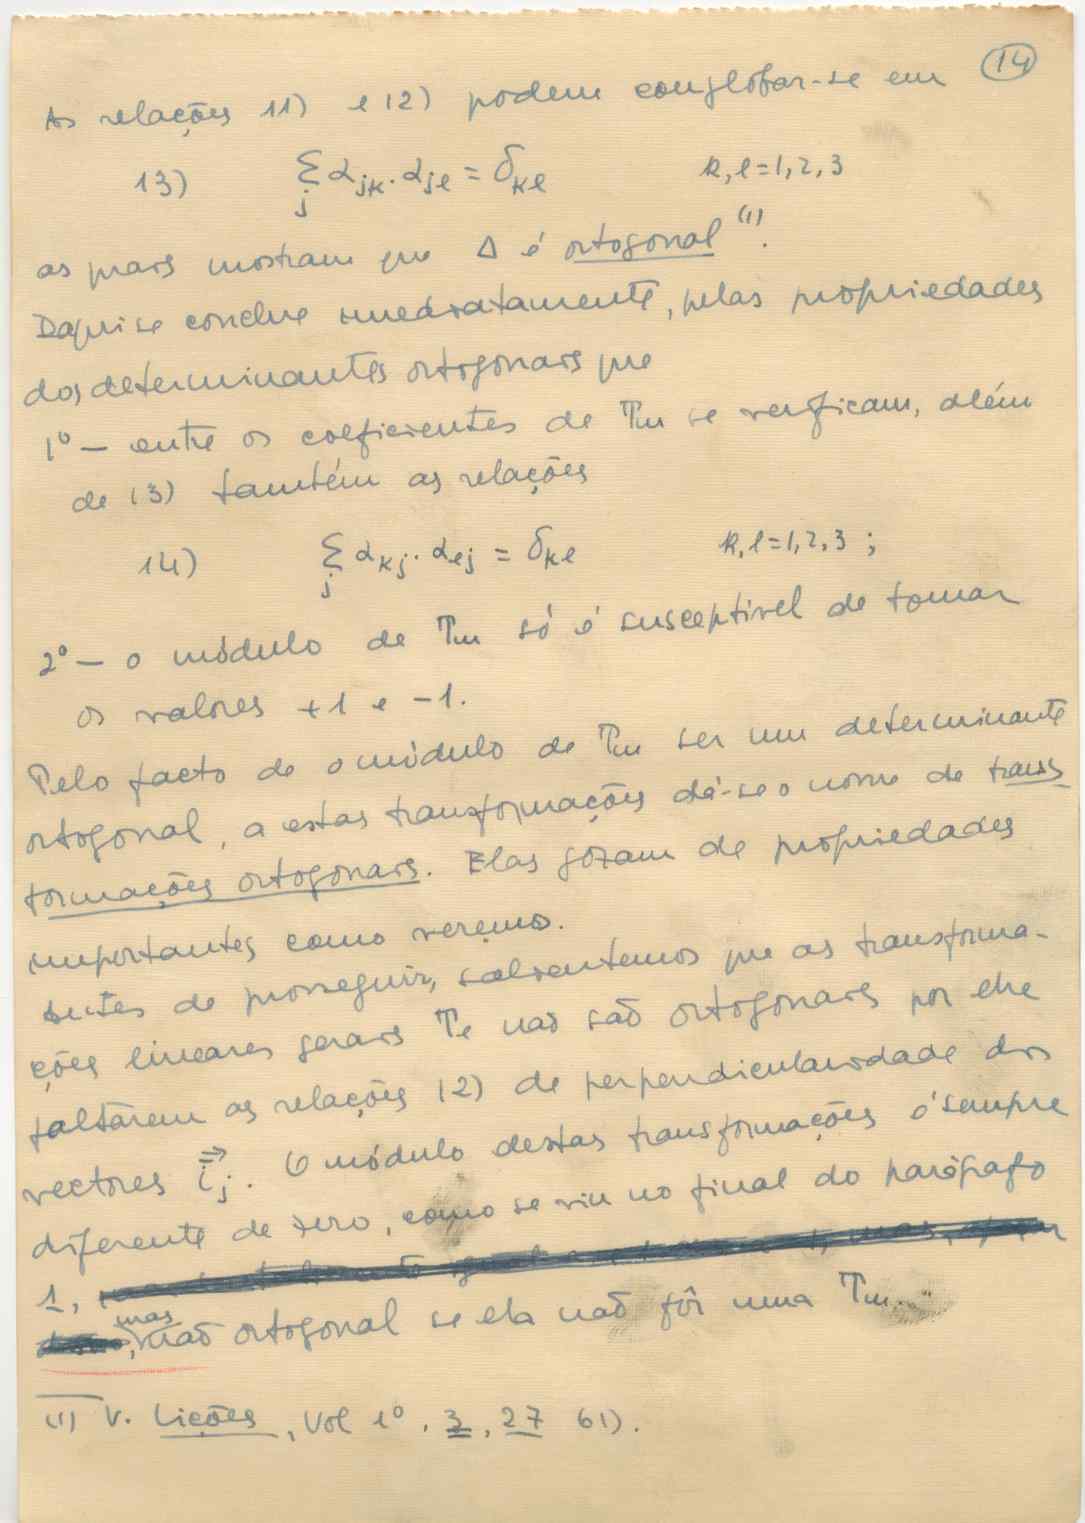 14
As relações 11) e 12) podem conglobar-se em
13) Σ_j α_jk . α_jl = δ_kl k, l = 1, 2, 3
as quais mostram que Δ é ortogonal (1).
Daqui se conclue imediatamente, pelas propriedades
dos determinantes ortogonais que
1º — entre os coeficientes de Tm se verificam, além
de 13) também as relações
14) Σ_j α_kj . α_lj = δ_kl k, l = 1, 2, 3 ;
2º — o módulo de Tm só é susceptível de tomar
os valores +1 e -1.
Pelo facto de o módulo de Tm ser um determinante
ortogonal, a estas transformações dá-se o nome de trans-
formações ortogonais. Elas gozam de propriedades
importantes como veremos.
Antes de prosseguir, salientemos que as transforma-
ções lineares gerais Te não são ortogonais por lhe
faltarem as relações 12) de perpendicularidade dos
vectores i⃗_j. O módulo destas transformações é sempre
diferente de zero, como se viu no final do parágrafo
1,
mas
, não ortogonal se ela não fôr uma Tm.
(1) V. Lições, Vol 1º, 3, 27 61).